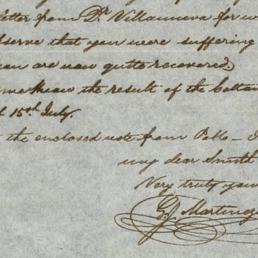 letter from Dr Villanueva for w
serve that you were suffering
are now quite recovered
know the result of the
15th July.
the enclosed note from Pablo -
my dear Smith
Very truly your
Martinez